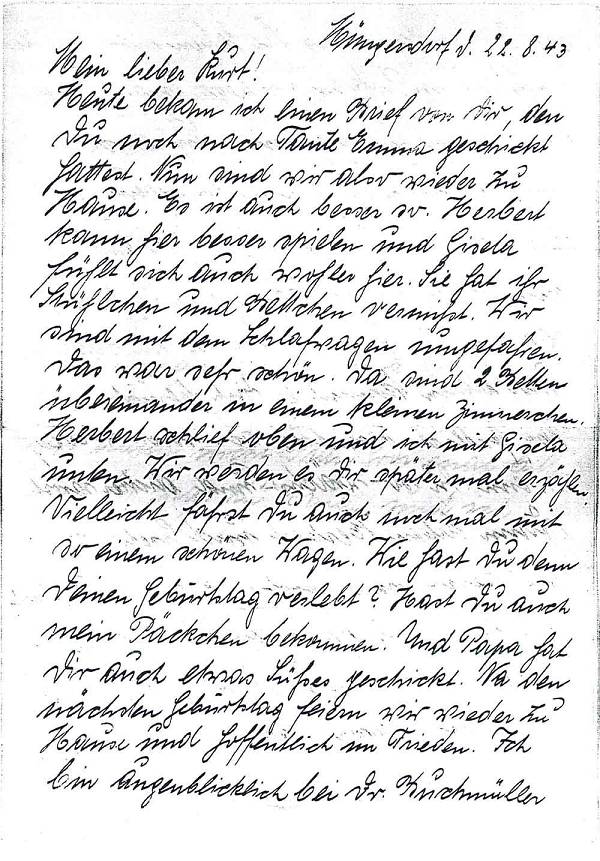 Müngersdorf d. 22.8.43
Mein lieber Kurt!
Heute bekam ich einen Brief von Dir, den
Du noch nach Tante Emma geschickt
hattest. Nun sind wir also wieder zu
Hause. Es ist auch besser so. Herbert
kann hier besser spielen und Gisela
fühlt sich auch wohler hier. Sie hat ihr
Stühlchen und Bettchen vermißt. Wir
sind mit dem Schlafwagen umgefahren.
Das war sehr schön. Da sind 2 Betten
übereinander in einem kleinen Zimmerchen.
Herbert schlief oben und ich mit Gisela
unten. Wir werden es Dir später mal erzählen.
Vielleicht fährst Du auch noch mal mit
so einem schönen Wagen. Wie hast Du denn
Deinen Geburtstag verlebt? Hast Du auch
mein Päckchen bekommen. Und Papa hat
Dir auch etwas Süßes geschickt. Na den
nächsten Geburtstag feiern wir wieder zu
Hause und hoffentlich im Frieden. Ich
bin augenblicklich bei Dr. Buchmüller